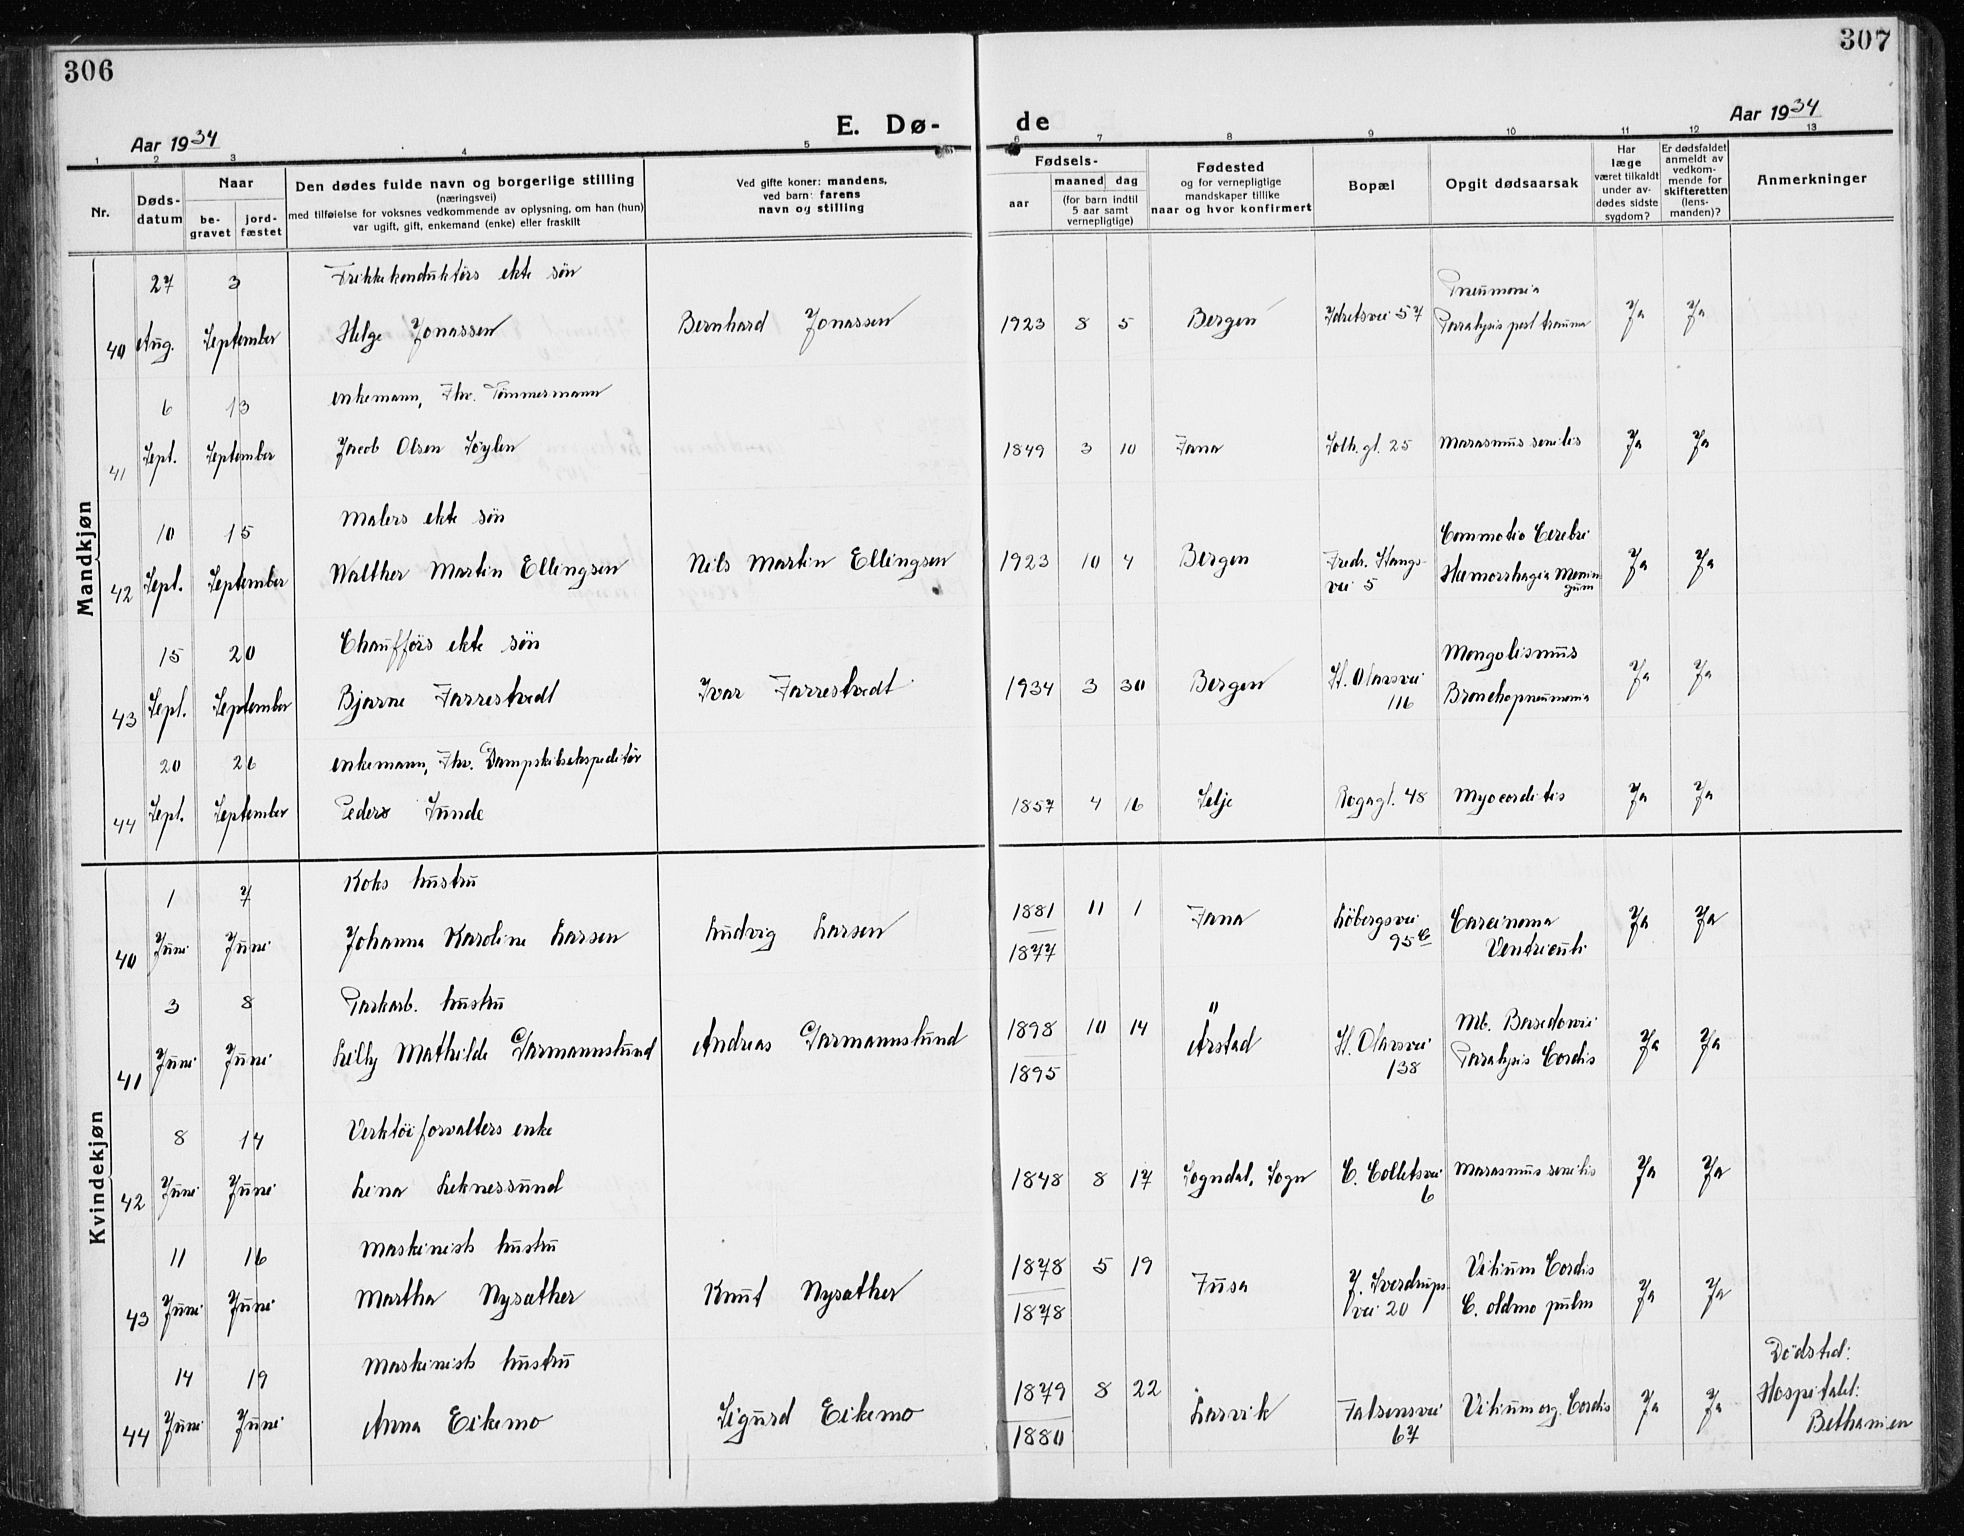 306
307
Aar 1934
E. Dø-
de
Aar 1934
1 2 3 4 5 6 7 8 9 10 11 12 13
Nr.
Døds-
datum
Naar
be-
gravet
jord-
fæstet
Den dødes fulde navn og borgerlige stilling
(næringsvei)
med tilføielse for voksnes vedkommende av oplysning, om han (hun)
var ugift, gift, enkemand (enke) eller fraskilt
Ved gifte koner: mandens,
ved barn: farens
navn og stilling
Fødsels-
aar
maaned dag
(for barn indtil
5 aar samt
vernepligtige)
Fødested
og for vernepligtige
mandskaper tillike
naar og hvor konfirmert
Bopæl
Opgit dødsaarsak
Har
læge
været tilkaldt
under av-
dødes sidste
sygdom?
Er dødsfaldet
anmeldt av
vedkom-
mende for
skifteretten
(lens-
manden)?
Anmerkninger
Mandkjøn
27 3 Trikkekonduktørs ekte søn Pneumonia
40 Aug. September Helge Jonassen Bernhard Jonassen 1923 8 5 Bergen Idretsvei 57 Paralysis post trauma Ja Ja
6 13 enkemann, Fhv. Tømmermann
41 Sept. September Jacob Olsen Søylen 1849 3 10 Fana Solh.gt. 25 Marasmus senilis Ja Ja
10 15 Malers ekte søn Commotio Cerebri
42 Sept. September Walther Martin Ellingsen Nils Martin Ellingsen 1923 10 4 Bergen Fredr. Stangs- Hæmorrhagia Menin
vei 5 gum Ja Ja
15 20 Chaufførs ekte søn Mongolismus
43 Sept. September Bjarne Farrestvedt Ivar Farrestvedt 1934 3 30 Bergen St. Olavsvei Bronchopneumonia Ja Ja
116
20 26 enkemann, Fhv. Dampskibsekspeditør
44 Sept. September Peder Sunde 1857 4 16 Selje Rogagt. 48 Myocarditis Ja Ja
Kvindekjøn
1 7 Koks hustru
40 Juni Juni Johanna Karoline Larsen Ludvig Larsen 1881 11 1 Fana Løbergsvei Carcinoma Ja Ja
1877 95 C Ventriculi
3 8 Parkarb. hustru Mb. Basedowii
41 Juni Juni Lilly Mathilde Garmannslund Andreas Garmannslund 1898 10 14 Årstad St. Olavsvei Paralysis Cordis Ja Ja
1895 138
8 14 Verktøiforvalters enke
42 Juni Juni Lina Leknessund 1848 8 17 Sogndal, Sogn C. Colletsvei Marasmus senilis Ja Ja
6
11 16 Maskinists hustru Vitium Cordis
43 Juni Juni Martha Nysæther Knut Nysæther 1878 5 19 Fusa J. Sverdrups- C. oldmo pulm Ja Ja
1878 vei 20
14 19 Maskinists hustru Dødsted:
44 Juni Juni Anna Eikemo Sigurd Eikemo 1879 8 22 Larvik Falsensvei Vitium org. Cordis Ja Ja Hospitalet:
1880 67 Bethanien